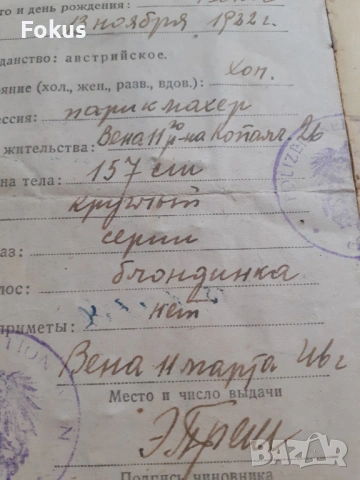 Fokus
то и день рождения:
13 ноября 1922 г.
данство: австрийское.
яние (хол., жен., разв., вдов.) хол.
ссия: парикмахер
жительства: Вена 11 20 р-на Копалг. 26
на тела: 157 см
круглый
аз: серии
лос: блондинка
приметы: нет
Вена 11 марта 46 г
Место и число выдачи
Подпись чиновника
POLIZEI
BAZAR
bg